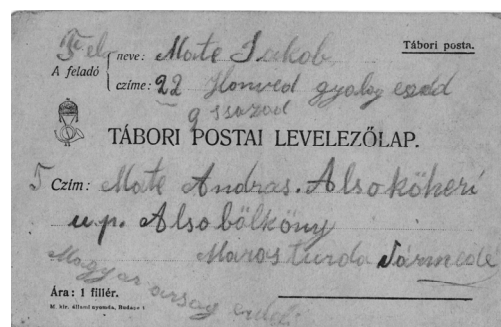 Fel
Tábori posta.
A feladó
neve: Mate Jakob
czíme: 22 Honved gyalog ezréd
9 szazad
TÁBORI POSTAI LEVELEZŐLAP.
T Czím: Mate Andras. Alsoköheri
u.p. Alsobölköny
Maros turda Vármede
Magyar orszag erdel
Ára: 1 fillér.
M. kir. állami nyomda, Budapest